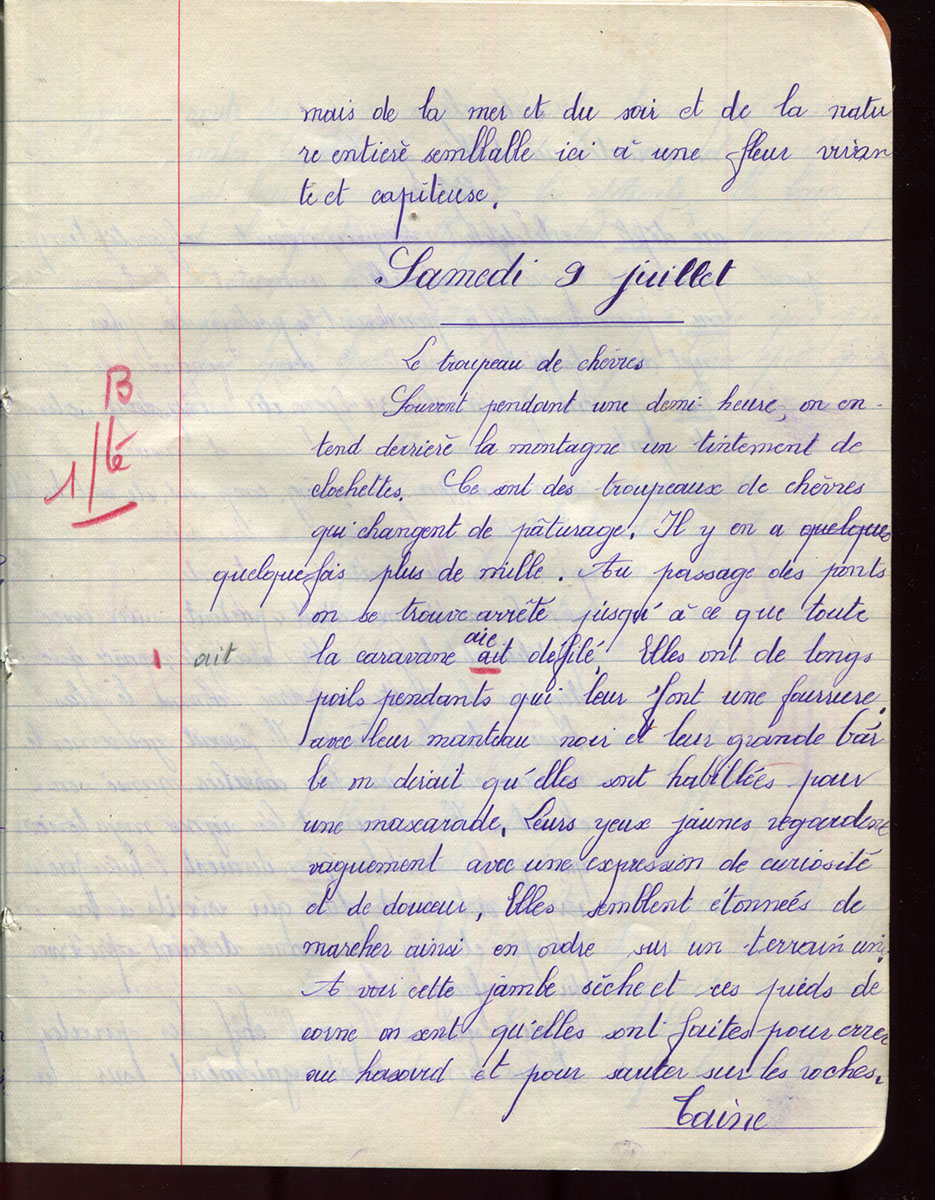 mais de la mer et du soir et de la natu
re entierè semblable ici à une fleur vivan
te et capiteuse.
Samedi 9 juillet
Le troupeau de chèvres
B
1/fé
Souvent pendant une demi heure, on en-
tend derrierè la montagne un tintement de
clochettes. Ce sont des troupeaux de chèvres
qui changent de pâturage. Il y en a quelques
quelquefois plus de mille. Au passage des ponts
on se trouve arrêté jusqu'à ce que toute
aie
1 ait la caravane ait défilé. Elles ont de longs
poils pendants qui leur font une fourrure.
avec leur manteau noir et leur grande bar
be on dirait qu'elles sont habillées pour
une mascarade. Leurs yeux jaunes regardent
vaguement avec une expression de curiosité
et de douceur. Elles semblent étonnées de
marcher ainsi en ordre sur un terrain uni.
A voir cette jambe sèche et ces pieds de
corne on sent qu'elles sont faites pour errer
au hasard et pour sauter sur les roches.
Taine